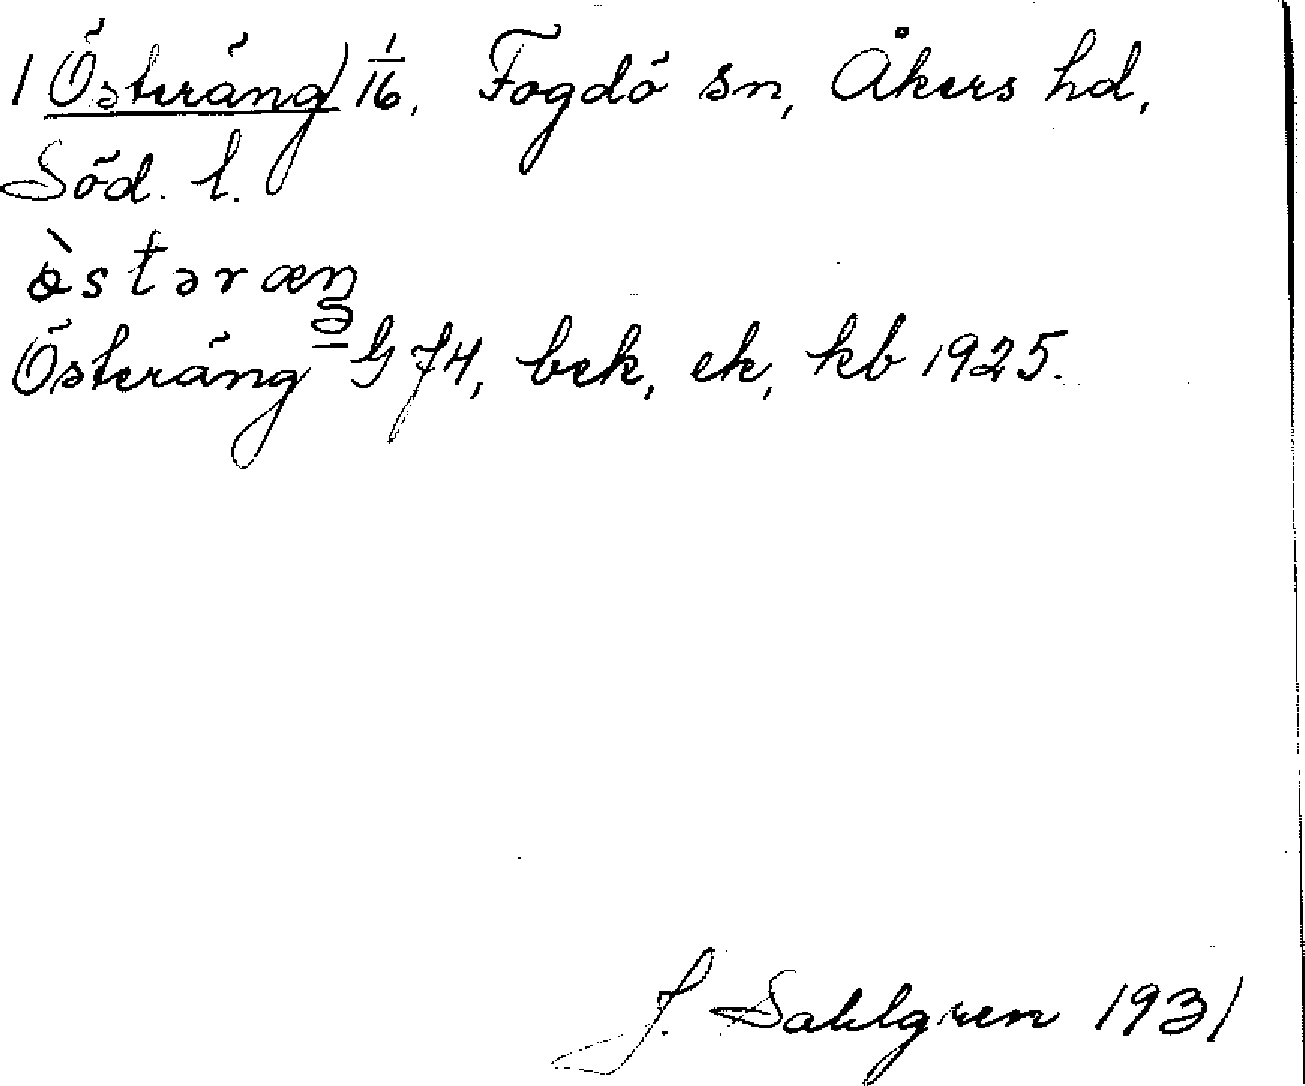 1 Österäng 1/16, Fogdö sn, Åkers hd,
Söd. l.
ɵ̀stəræŋ
Österäng G 74, bek, ek, kb 1925.
J. Sahlgren 1931